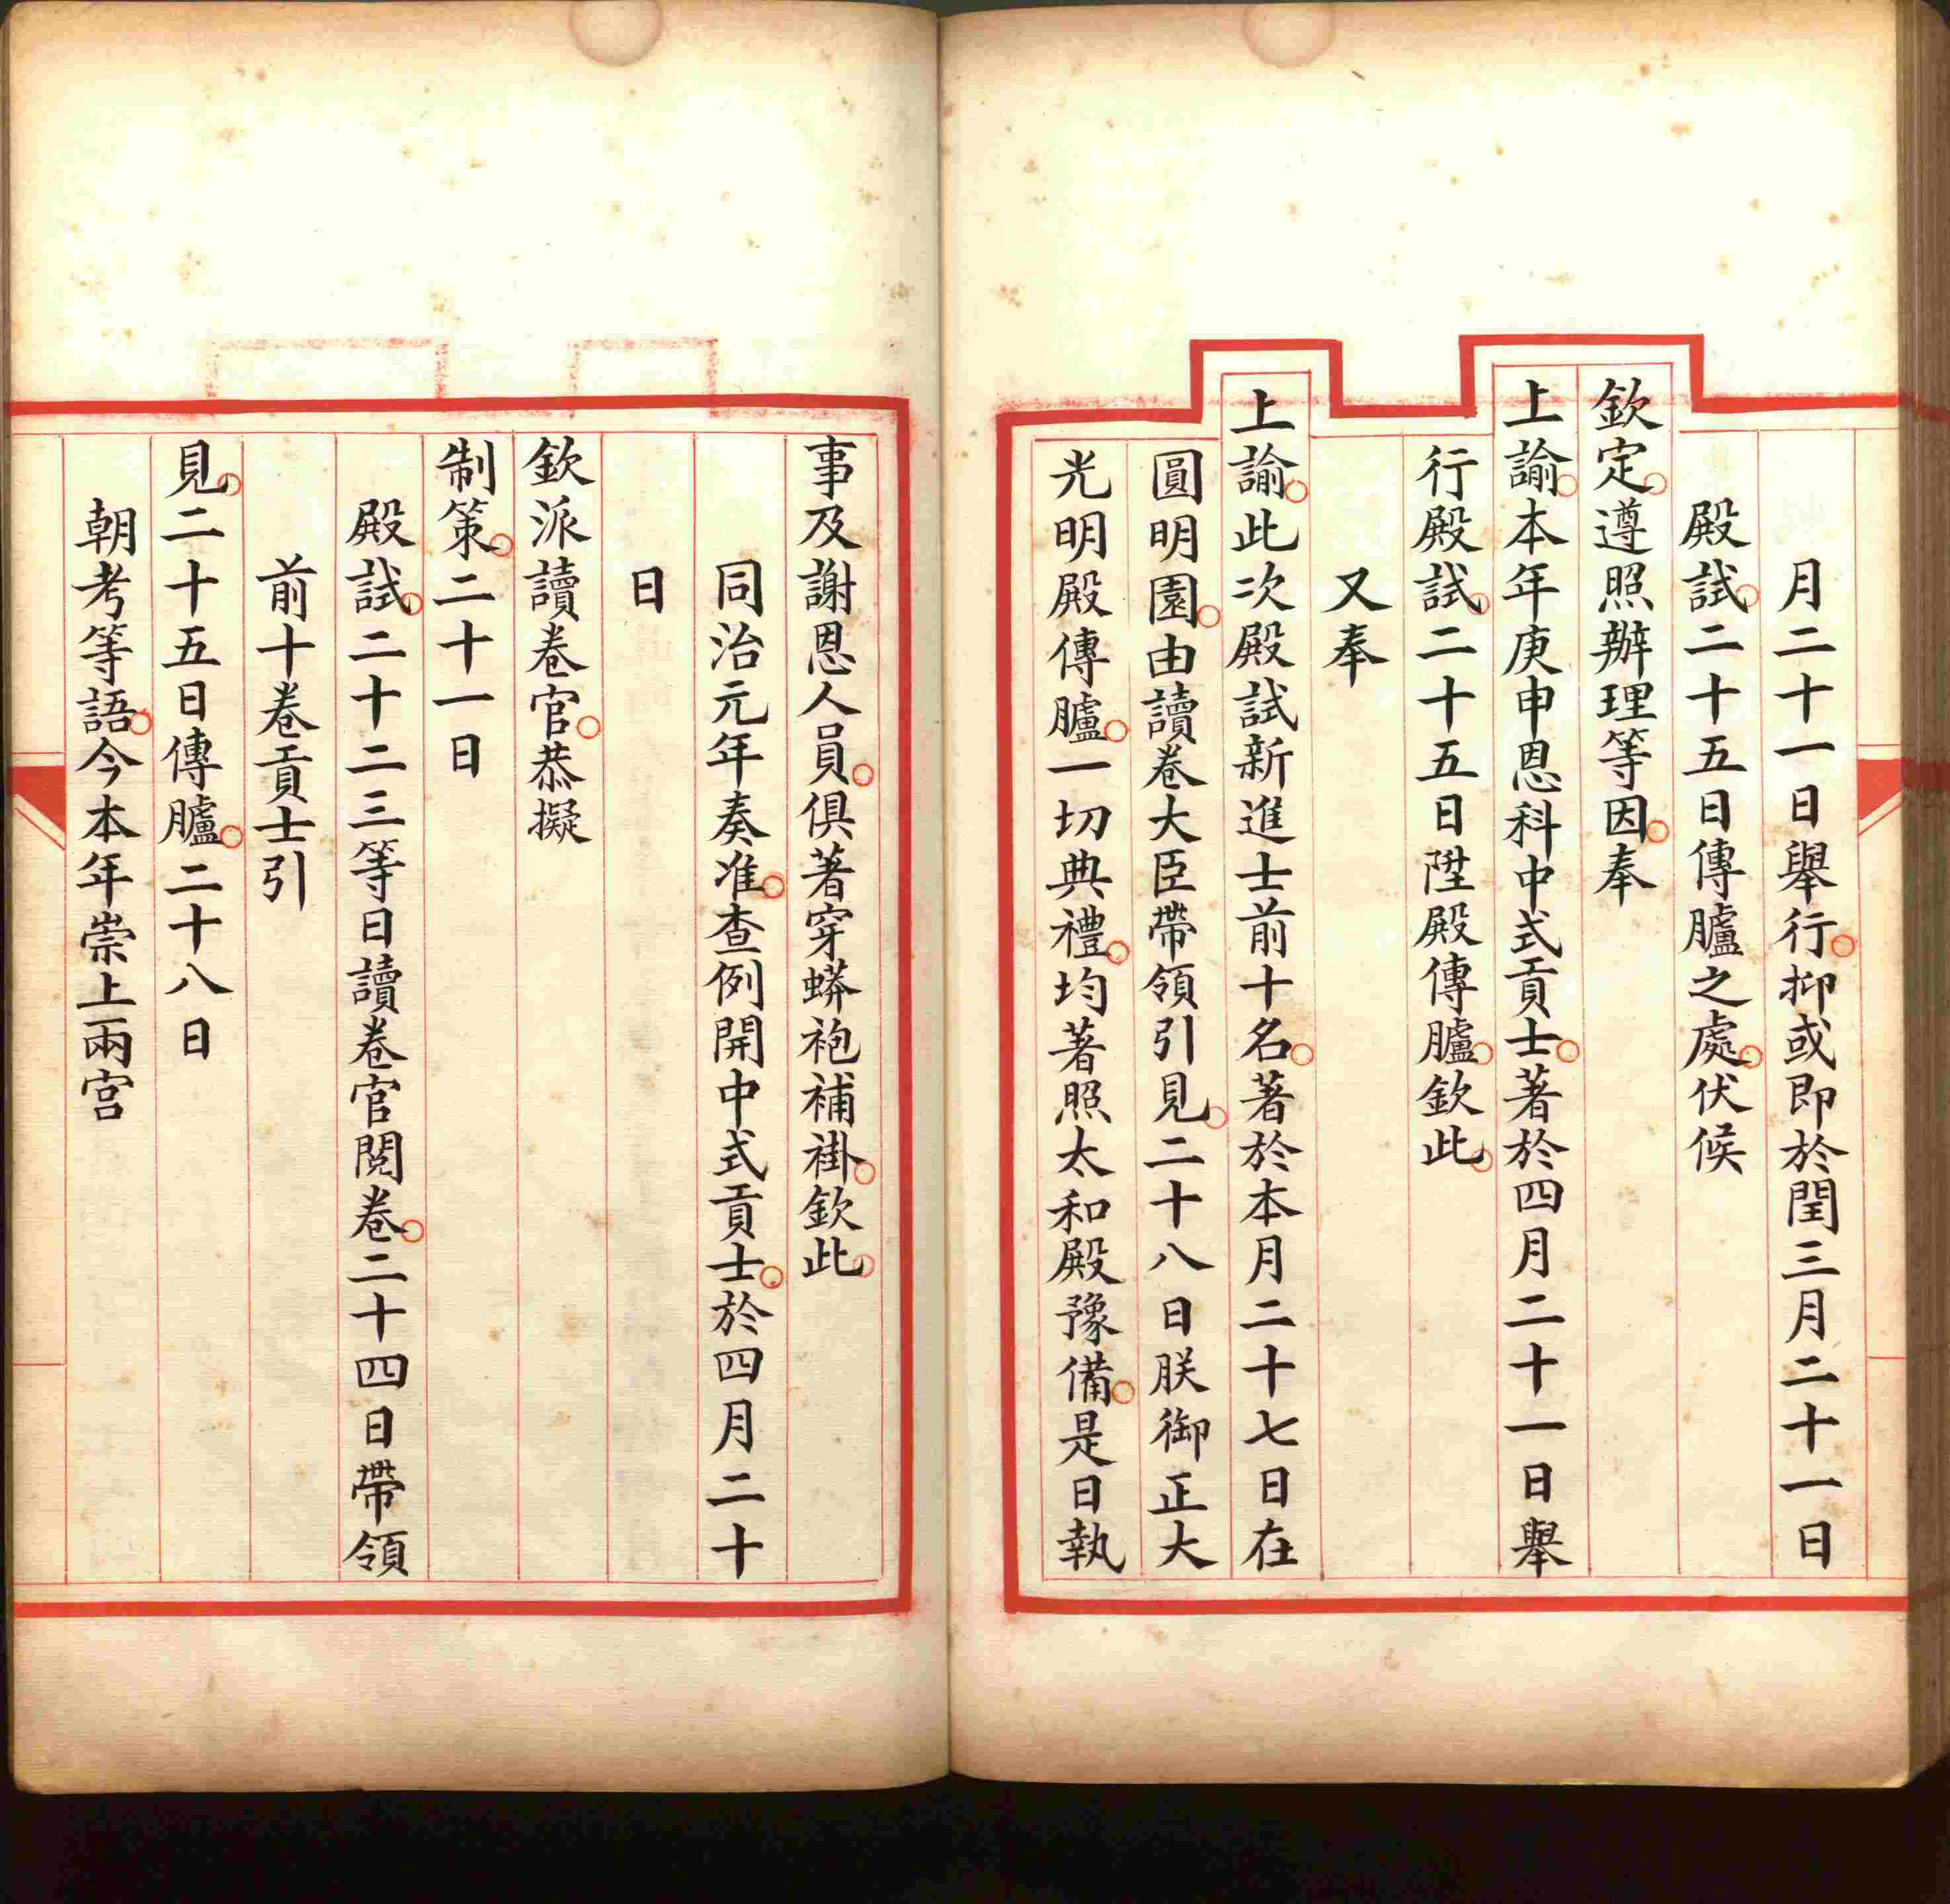 月二十一日舉行抑或即於閏三月二十一日
殿試二十五日傳臚之處伏候
欽定遵照辦理等因奉
上諭本年庚申恩科中式貢士著於四月二十一日舉
行殿試二十五日陞殿傳臚欽此
又奉
上諭此次殿試新進士前十名著於本月二十七日在
圓明園由讀卷大臣帶領引見二十八日朕御正大
光明殿傳臚一切典禮均著照太和殿豫備是日執
事及謝恩人員俱著穿蟒袍補褂欽此
同治元年奏准查例開中式貢士於四月二十
日
欽派讀卷官恭擬
制策二十一日
殿試二十二三等日讀卷官閱卷二十四日帶領
前十卷貢士引
見二十五日傳臚二十八日
朝考等語今本年崇上兩宮